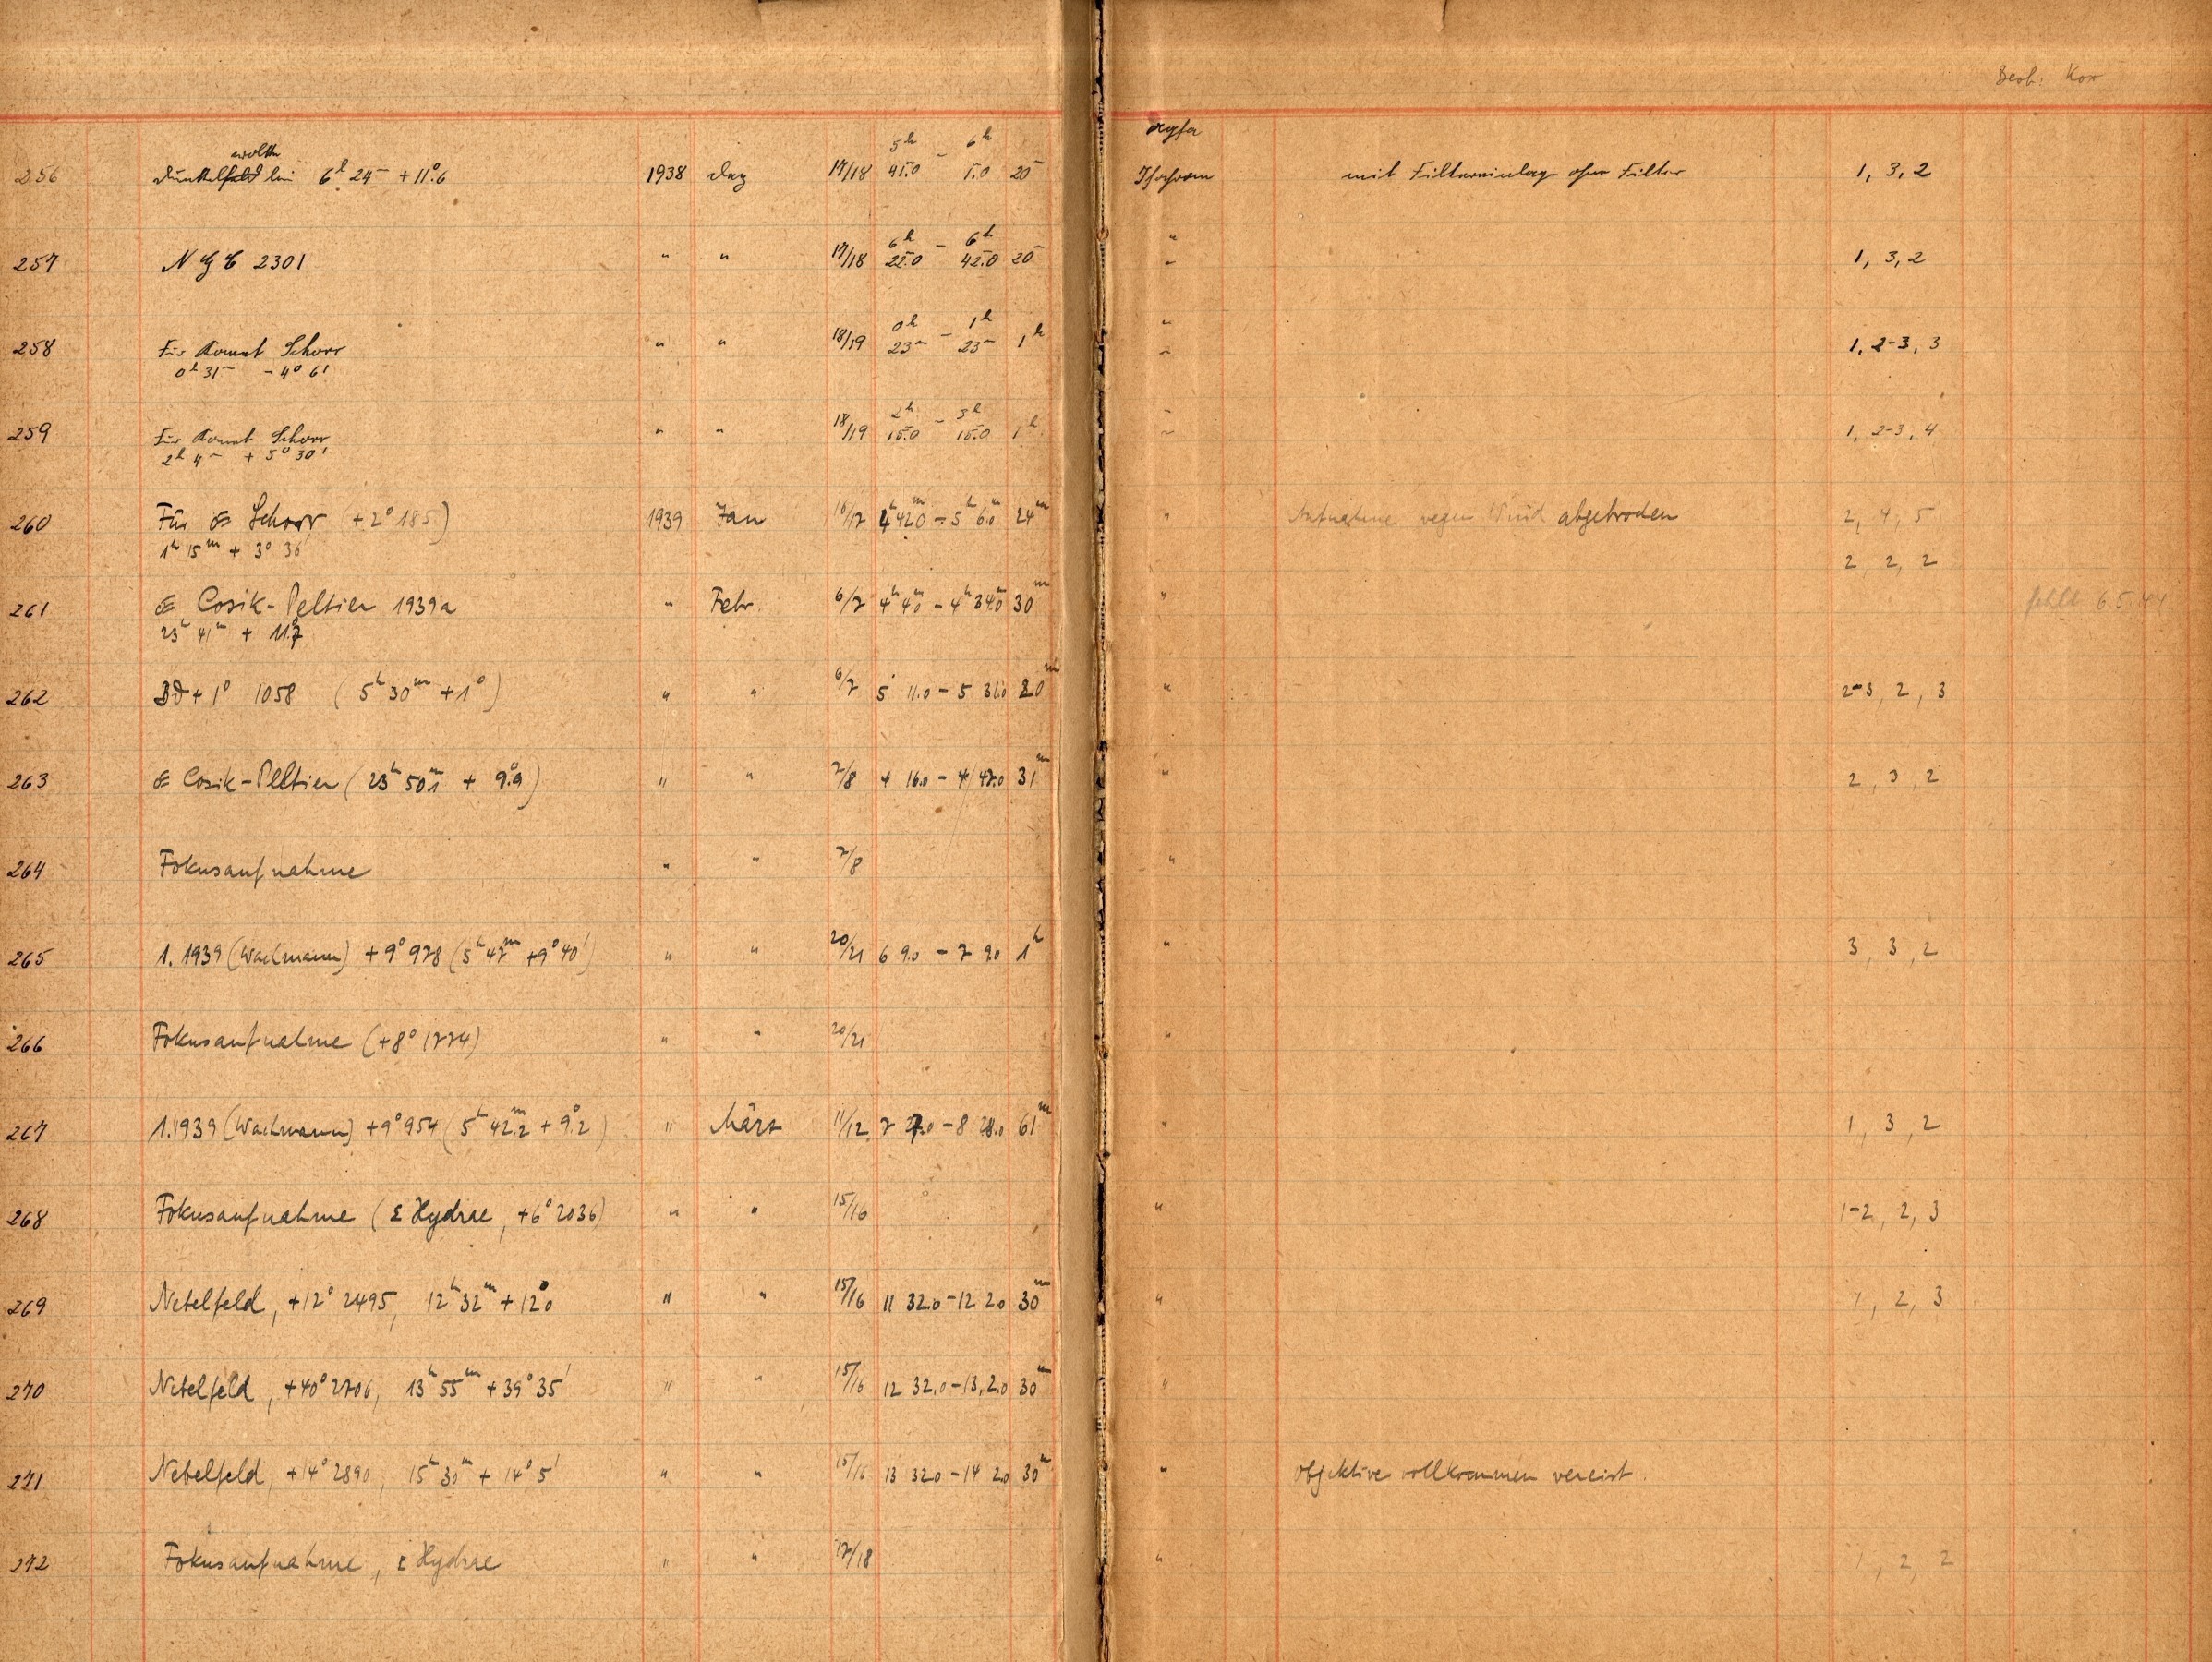 Beob: Kox
Agfa
256 Dunkelfeld wolke bei 6h 24m + 11°.6 1938 Dez 17/18 5h 45.0 – 6h 5.0 20m Isochrom mit Filtereinlage ohne Filter 1, 3, 2
257 NGC 2301 " " 17/18 6h 22.0 – 6h 42.0 20m " " 1, 3, 2
258 Für Komet Schorr " " 18/19 0h 23m – 1h 23m 1h " " 1, 2-3, 3
0h 31m - 4° 6'
259 Für Komet Schorr " " 18/19 2h 15.0 – 3h 15.0 1h " " 1, 2-3, 4
2h 4m + 5° 30'
260 Für ☄ Schorr + 2° 185) 1939 Jan 16/17 4h 42.0m – 5h 6.0m 24m " Aufnahme wegen Wind abgebrochen 2, 4, 5
1h 15m + 3° 36
2, 2, 2
261 ☄ Cosik-Peltier 1939a " Febr. 6/7 4h 4.0m – 4h 34.0m 30m " fehlt 6.5.44.
23h 41m + 11.°7
262 BD + 1° 1058 (5h 30m + 1°) " " 6/7 5 11.0 – 5 31.0 20m " 2-3, 2, 3
263 ☄ Cosik-Peltier (23h 50m.1 + 9.°9) " " 7/8 4 16.0 – 4 47.0 31m " 2, 3, 2
264 Fokusaufnahme " " 7/8 "
265 1.1939 (Wachmann) + 9° 978 (5h 47m + 9° 40') " " 20/21 6 9.0 – 7 9.0 1h " 3, 3, 2
266 Fokusaufnahme (+8° 1774) " " 20/21 "
267 1.1939 (Wachmann) + 9° 954 (5h 42.m2 + 9.°2) " März 11/12 7 27.0 – 8 28.0 61m " 1, 3, 2
268 Fokusaufnahme (ε Hydrae, +6° 2036) " " 15/16 " 1-2, 2, 3
269 Nebelfeld, +12° 2495, 12h 32m + 12.°0 " " 15/16 11 32.0 – 12 2.0 30m " 1, 2, 3
270 Nebelfeld, +40° 2706, 13h 55m + 39° 35' " " 15/16 12 32.0 – 13, 2.0 30m "
271 Nebelfeld, +14° 2890, 15h 30m + 14° 5' " " 15/16 13 32.0 – 14 2.0 30m " Objektive vollkommen vereist.
272 Fokusaufnahme, ε Hydrae " " 17/18 " 1, 2, 2